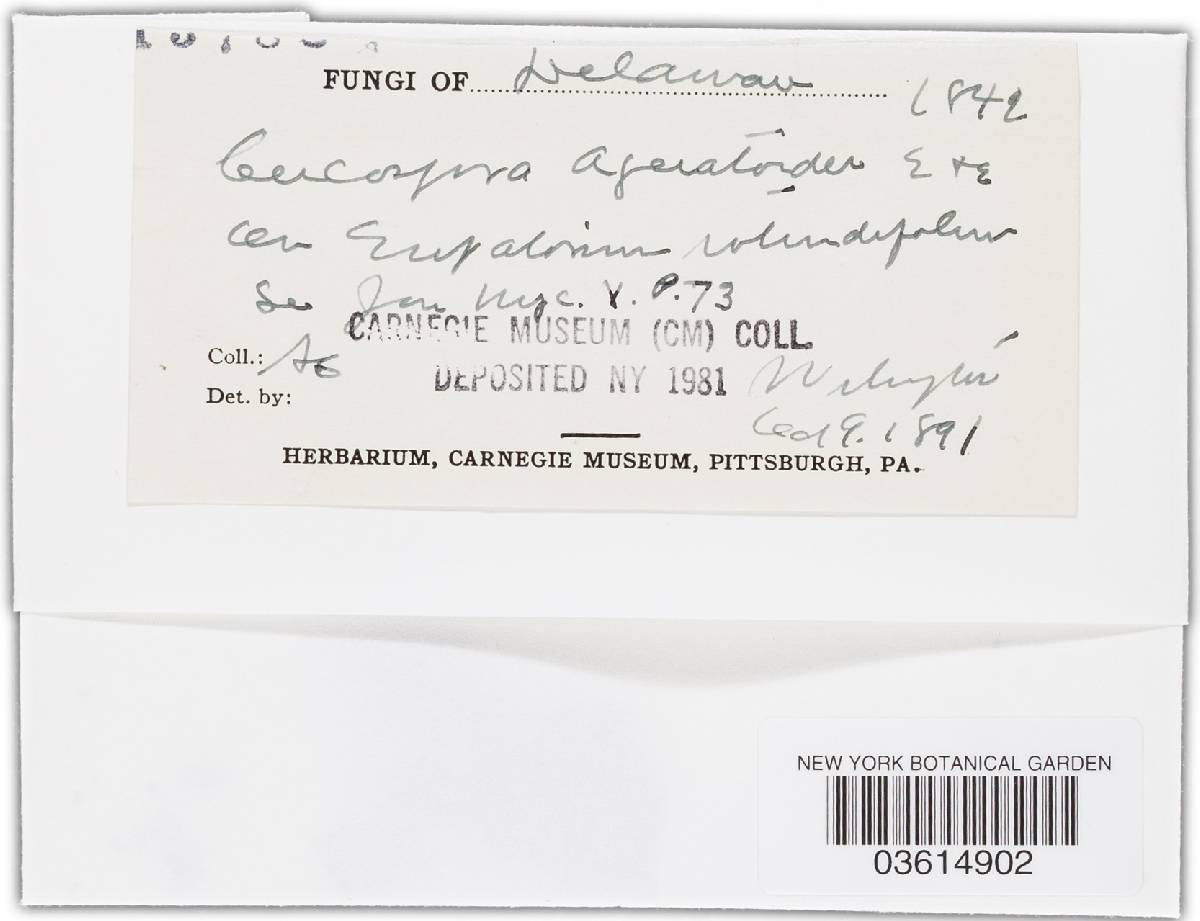 FUNGI OF Delaware 1842
Cercospora Ageratoides E & E
on Eupatorium rotundifolium
Se Jour Myc. V. P. 73
CARNEGIE MUSEUM (CM) COLL.
Coll.:
DEPOSITED NY 1981 Wilmington
Det. by:
9. 1891
HERBARIUM, CARNEGIE MUSEUM, PITTSBURGH, PA.
NEW YORK BOTANICAL GARDEN
03614902